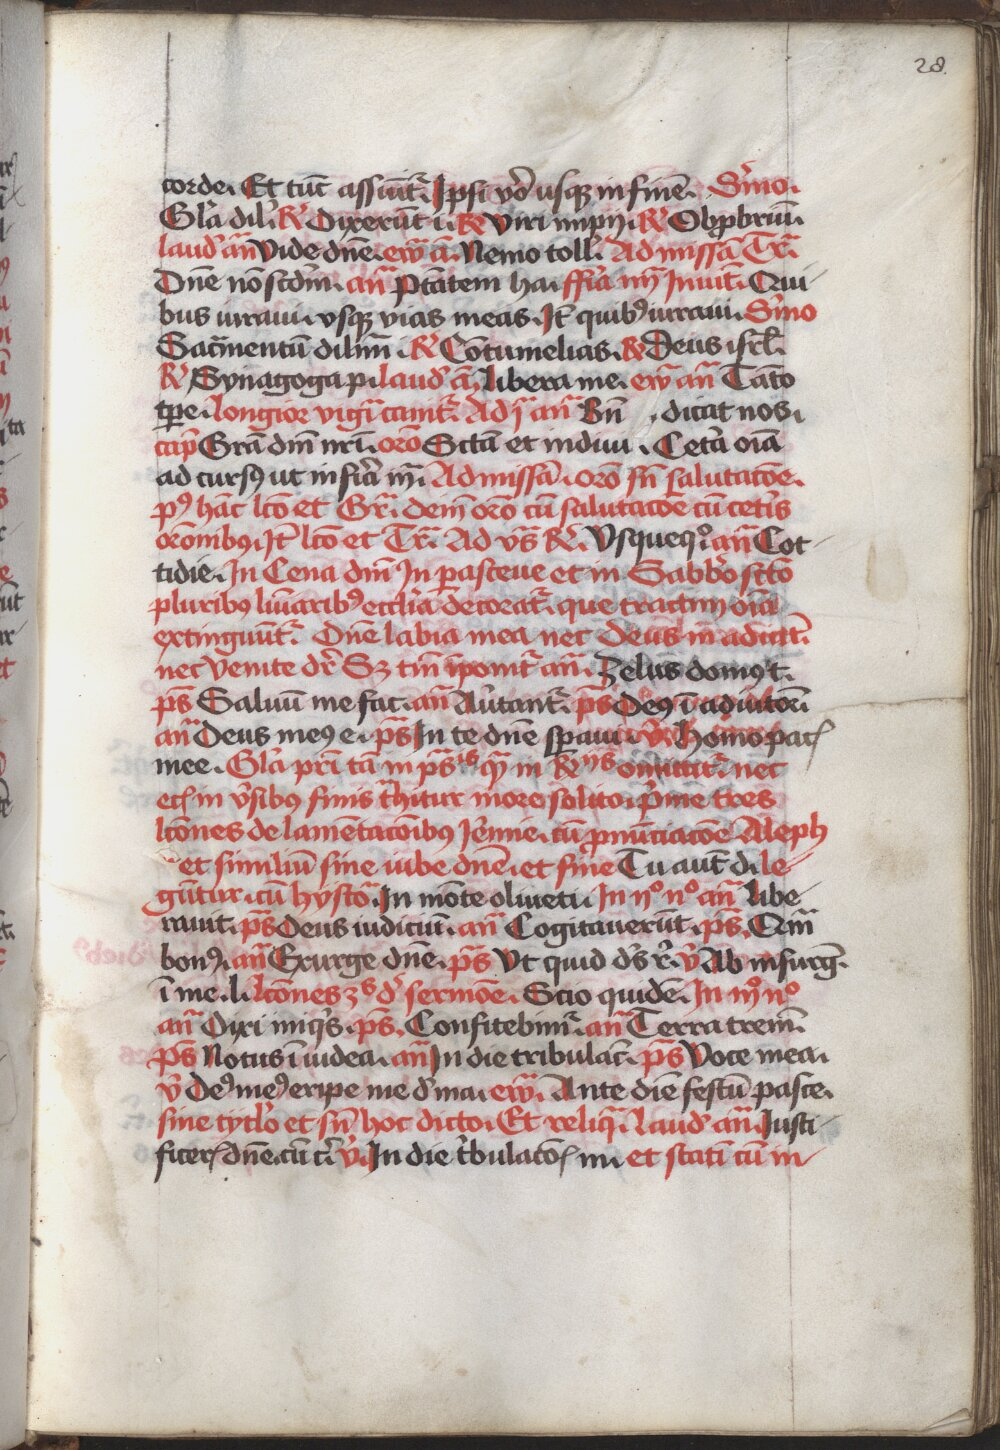 28
corde. Et tūc assūt᷑. Ipsi vo᷑ usq̄ in finē. S᷑mo.
Gl᷑a dil᷑. R᷑ Dixerūt i. R᷑ Viri impij. R᷑ Opprbriū.
laud᷑ an̄ Vide dn̄e. ew̄ ā. Nemo toll᷑. Ad missā Tr᷑.
Dn̄e nō scdm̄. an̄ Ptātem ha. ff᷑ia iiij Inuit᷑. Qui
bus iuraui. vsq̄ vias meas. It᷑ quibꝰ iuraui. S᷑mo
Sac᷑mentū dilm̄. R᷑ Cōtumelias. R᷑ Deus isrl᷑.
R᷑ Synagoga p. laud᷑ ā. libera me. ew̄ an̄ Tāto
tꝑe. longior vig᷑ canit᷑. Ad j᷑ an̄ Bn̄ . dicat nos.
cap̄ Grā dm̄ nr̄i. orō Sctā et indiui . Cet᷑a oīa
ad cursꝰ ut in fi᷑a iij. Ad missā. orō sn̄ salutacōe.
pꝰ hāc lcō et Gr᷑. dein̄ orō cū salutacōe cū cet᷑is
orōnibꝰ. It᷑ lcō et Tr᷑. Ad vs̄ R᷑. Vsquequo. an̄ Cot
tidie. In Cena dn̄i In parasceue et in Sabb᷑o sctō
pluribꝰ luīaribꝰ eccl᷑ia decorat᷑. que tractim oīa
extinguūt᷑. Dn̄e labia mea nec Deus in adiut᷑.
nec Venite dr᷑ Sꝫ tm̄ īponit᷑ an̄. Zelus domꝰ t.
ps̄ Saluū me fac. an̄ Au᷑tant᷑. ps̄ Deꝰ ī adiutori
an̄ Deus meꝰ e. ps̄ In te dn̄e sꝑaui. v᷑. Homo pac
mee. Gl᷑a pr̄i tā in ps̄is qm̄ in R᷑ijs omittit᷑. nec
eciā in v᷑sibꝰ finis t᷑hitur more solito. P᷑me tres
lcōnes de lamētacōibꝰ Ier̄mie. cū ꝓnūciacōe Aleph
et similiū sine iube dn̄e. et fine Tu aut̄ di le
gūtur. cū hystō. In mōte oliueti. In ijo no an̄ libe
rauit. ps̄ Deus iudiciū. an̄ Cogitauerūt. ps̄. Qm̄
bonꝰ. an̄ Exurge dn̄e. ps̄ Vt quid ds̄ r᷑. v᷑ Ab insurḡ.
ī me. li. lcōnes 3s d᷑ sermōe. Scio quidē. In iijo no
an̄ Dixi iniqs. ps̄. Confitebim᷑. an̄ Terra trem̄.
ps̄ Notus ī iudea. an̄ In die tribulac᷑. ps̄ Voce mea.
v᷑ Deꝰ meꝰ eripe me d᷑ ma. ew̄. Ante diē festū pasce.
sine tytl᷑o et sn̄ hoc dicto. Et reliq̄. Laud᷑ an̄. Justi
ficer᷑ dn̄e. cū c᷑i v᷑. In die t᷑bulacō mi et statī cū in